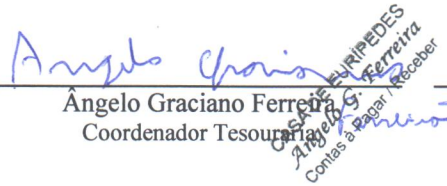 Angelo Graciano
Ferreira
Ângelo Graciano Ferreira
Coordenador Tesouraria
CASA DE EURIPEDES
Angelo G. Ferreira
Contas à Pagar / Receber